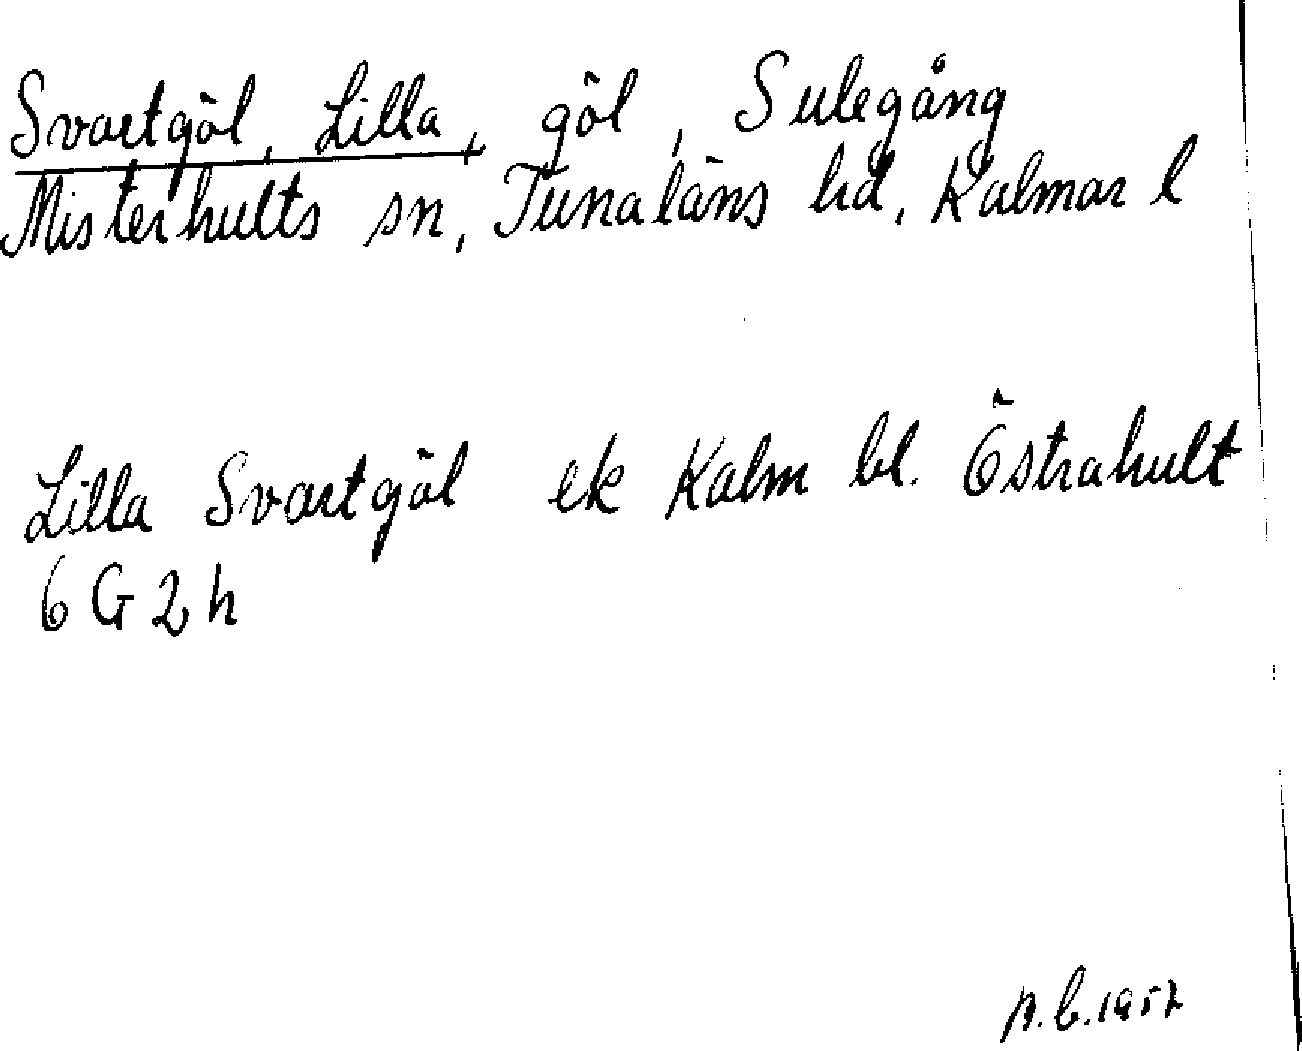 Svartgöl, Lilla, göl, Sulegång
Misterhults sn, Tunaläns hd, Kalmar l
Lilla Svartgöl ek Kalm bl. Östrahult
6 G 2 h
p.b. 1957